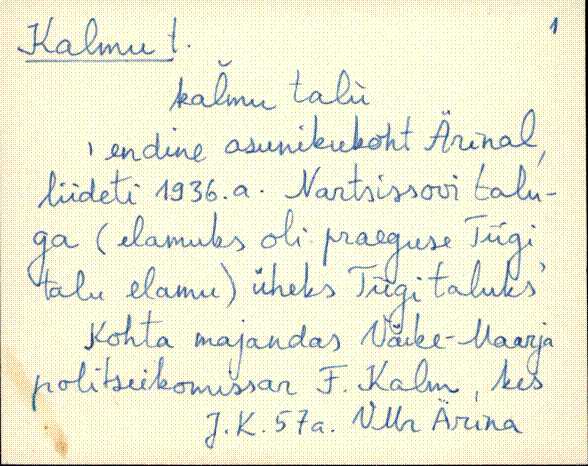 Kalmu t.
1
kal̆mu talù
'endine asunikukoht Ärinal,
liideti 1936.a. Nartsissovi talu-
ga (elamuks oli praeguse Tiigi
talu elamu) üheks Tiigi taluks'
Kohta majandas Väike-Maarja
politseikomissar F. Kalm, kes
J.K. 57a. VMr Ärina